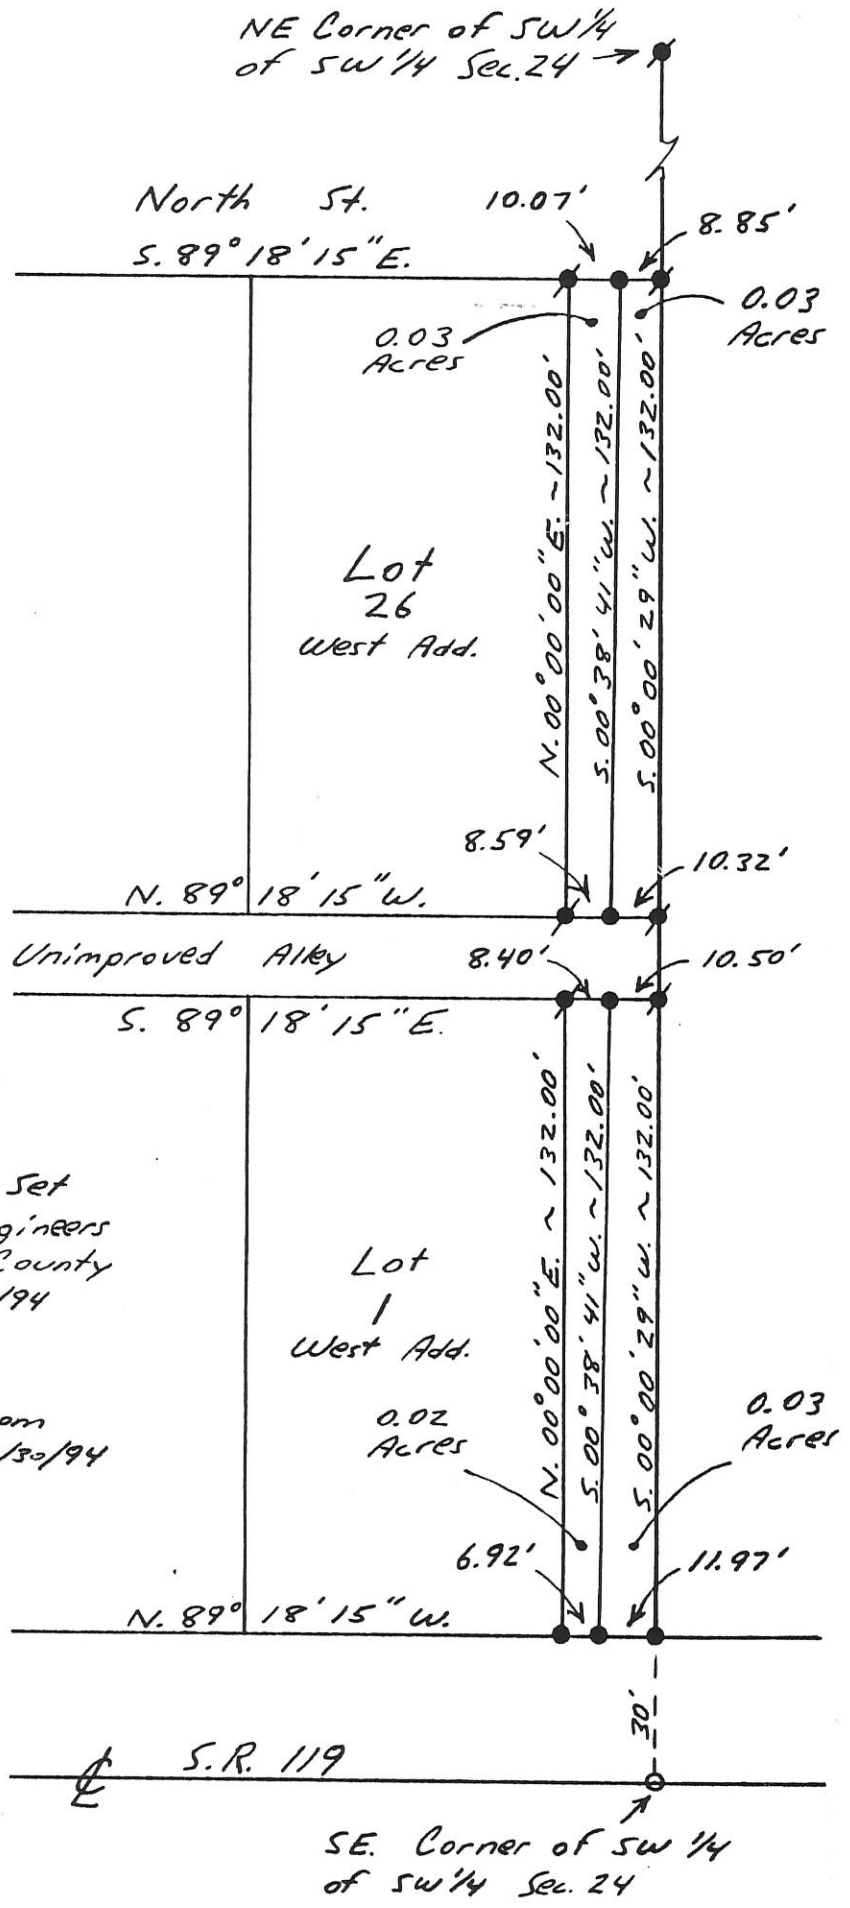 NE Corner of SW 1/4
of SW 1/4 Sec. 24
North St.
10.07'
8.85'
S. 89° 18' 15" E.
0.03
Acres
0.03
Acres
N. 00° 00' 00" E. ~ 132.00'
S. 00° 38' 41" W. ~ 132.00'
S. 00° 00' 29" W. ~ 132.00'
Lot
26
West Add.
8.59'
10.32'
N. 89° 18' 15" W.
Unimproved Alley
8.40'
10.50'
S. 89° 18' 15" E.
N. 00° 00' 00" E. ~ 132.00'
S. 00° 38' 41" W. ~ 132.00'
S. 00° 00' 29" W. ~ 132.00'
Set
gineers
County
/94
Lot
1
West Add.
om
/30/94
0.02
Acres
0.03
Acres
6.92'
11.97'
N. 89° 18' 15" W.
30'
℄ S.R. 119
SE. Corner of SW 1/4
of SW 1/4 Sec. 24